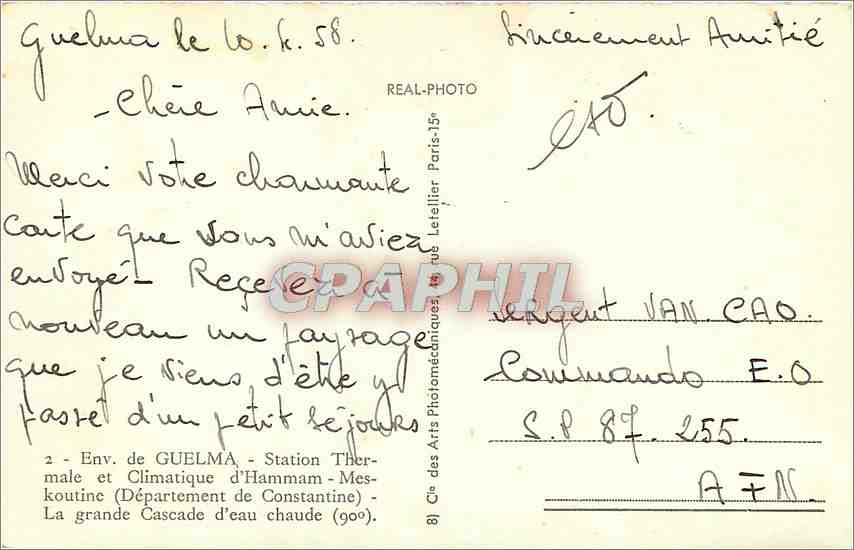 Guelma le 10.4.58.
- Chère Amie.
Merci votre charmante
carte que vous m'aviez
envoyé - Reçevez à
nouveau un paysage
que je viens d'être y
passé d'un petit séjours
2 - Env. de GUELMA - Station Ther-
male et Climatique d'Hammam-Mes-
koutine (Département de Constantine) -
La grande Cascade d'eau chaude (90º).
REAL-PHOTO
8) Cie des Arts Photomécaniques, 44, rue Letellier Paris-15e
CPAPHIL
Sincèrement Amitié
CAO.
Sergent VAN. CAO.
Commando E.O
S.P 87.255.
A F N.